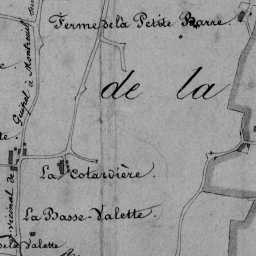 Ferme de la Petite Barre
de la
Guipel à Montreuil
La Cotardière.
La Basse-Valette.
de la Valette
vicinal de